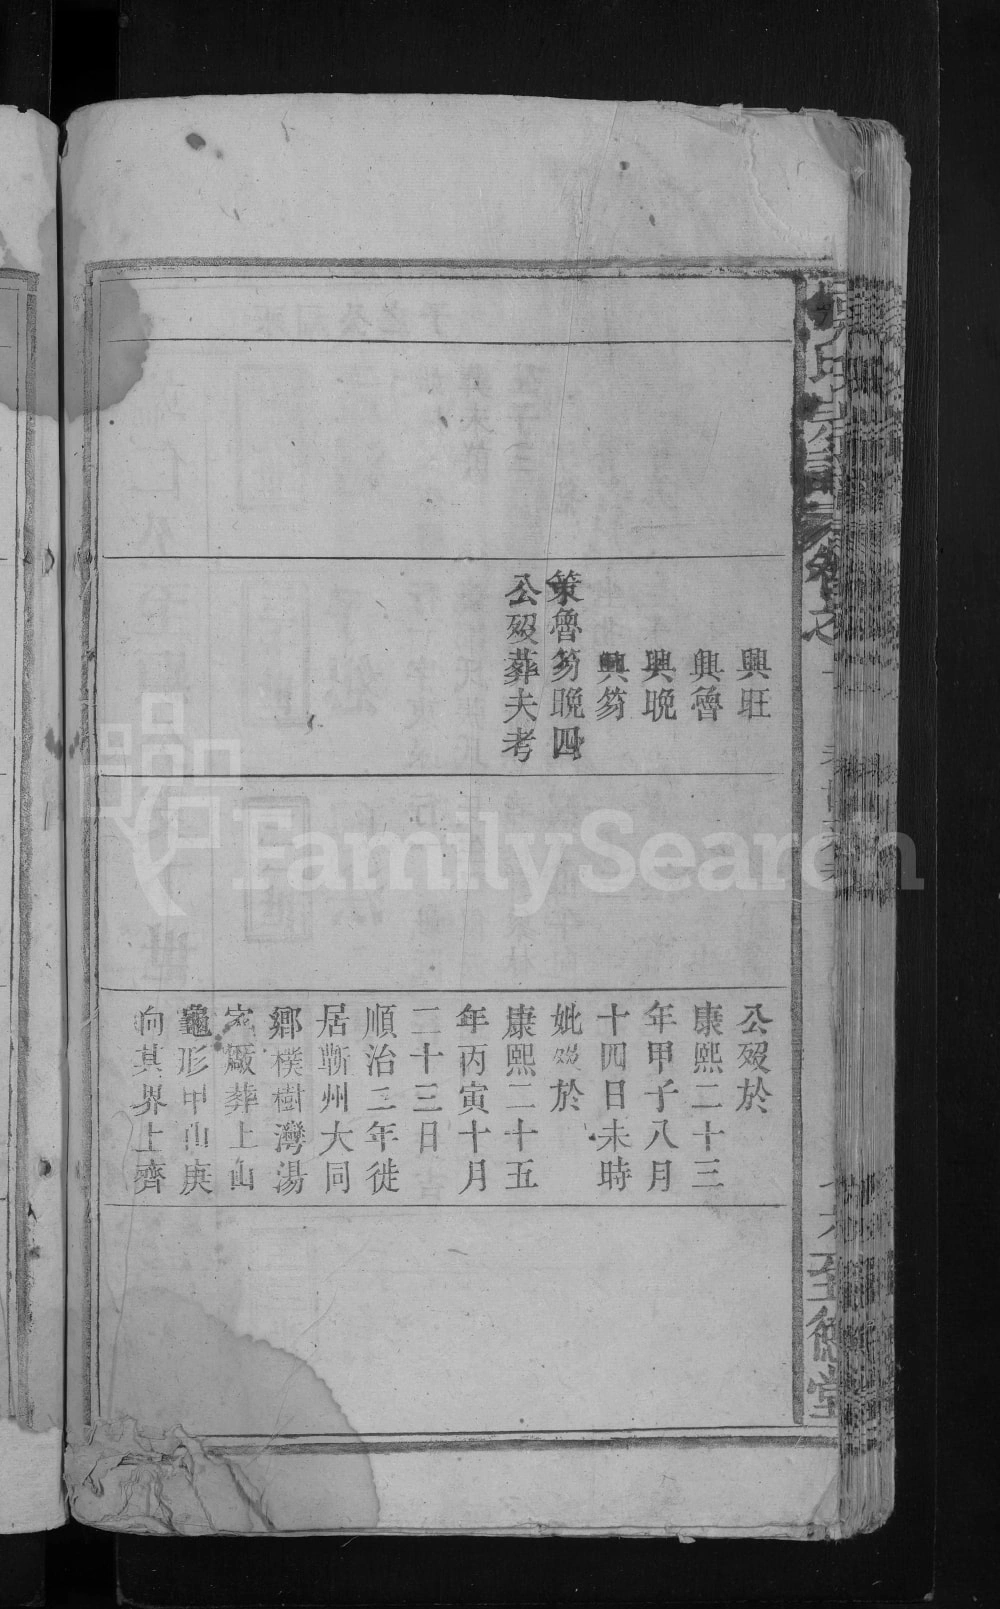 興旺
興魯
興晚
興芴
策魯芴晚四
公歿葬夫考
公歿於
康熙二十三
年甲子八月
十四日未時
妣歿於
康熙二十五
年丙寅十月
二十三日
順治二年徙
居蘄州大同
鄉樸樹灣湯
家廠葬上山
龜形甲山庚
向其界上齊
氏宗譜卷之
至德堂
FamilySearch